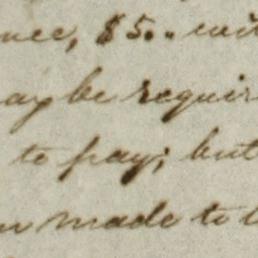 $5..
may be requir
to pay; but
made to